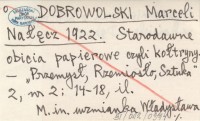 DOBROWOLSKI Marceli
Nałęcz 1922. Starodawne
obicia papierowe czyli kołtryny.
— "Przemysł, Rzemiosło, Sztuka"
2, w nr 2: 14-18, il.
M. in. wzmianka Władysława